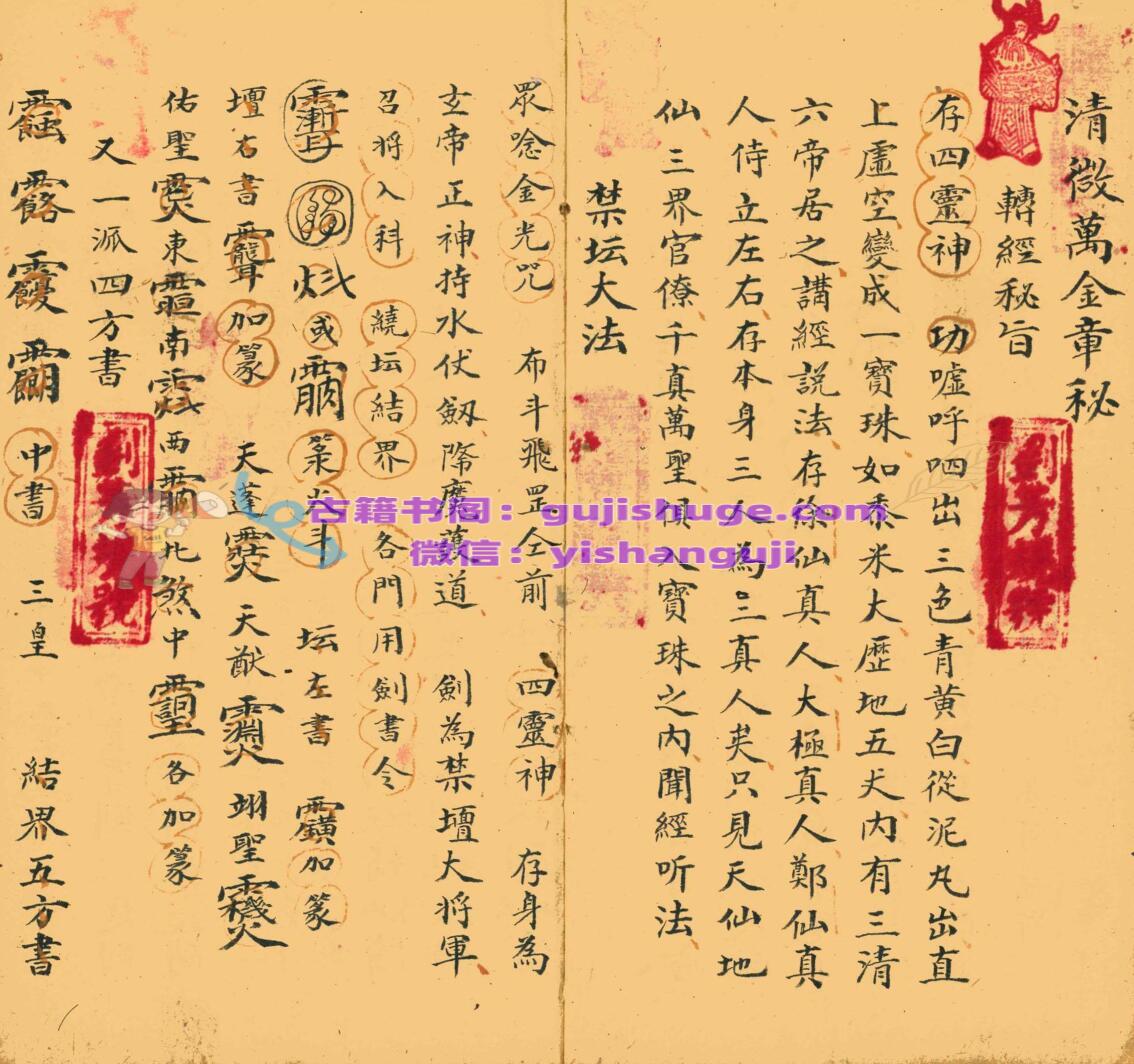 清微萬金章秘
轉經秘旨
存四靈神 功噓呼呬出三色青黄白從泥丸出直
上虛空變成一寶珠如黍米大歷地五丈内有三清
六帝居之講經説法存徐仙真人大極真人鄭仙真
人侍立左右存本身三人為三真人矣只見天仙地
仙三界官僚千真萬聖俱入寶珠之内聞經听法
禁坛大法
眾唸金光咒 布斗飛罡仝前 四靈神 存身為
玄帝正神持水伏劔降魔護道 劍為禁壇大将軍
召将入科 繞坛結界 各門用劍書令
或 坛左書 加篆
壇右書 加篆 天蓬 天猷 翊聖
佑聖 東 南 西 北煞中 各加篆
又一派四方書
中書 三皇 結界五方書
古籍书阁：gujishuge.com
微信：yishanguji